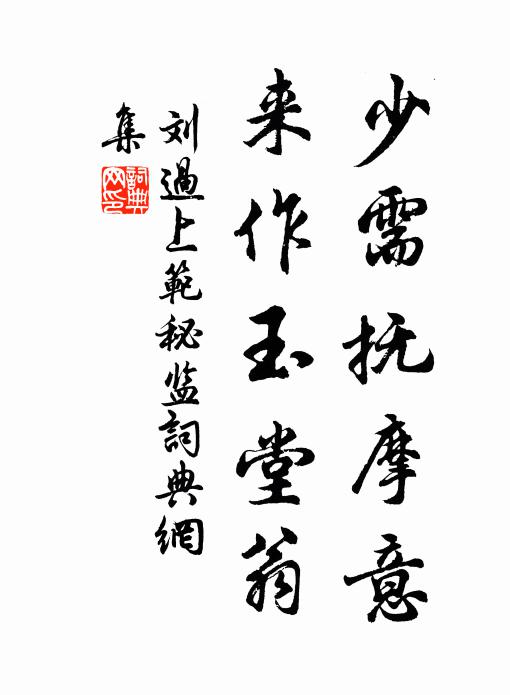 少需抚摩意
来作玉堂翁
刘過上範秘监詞典網
集
詞典网印